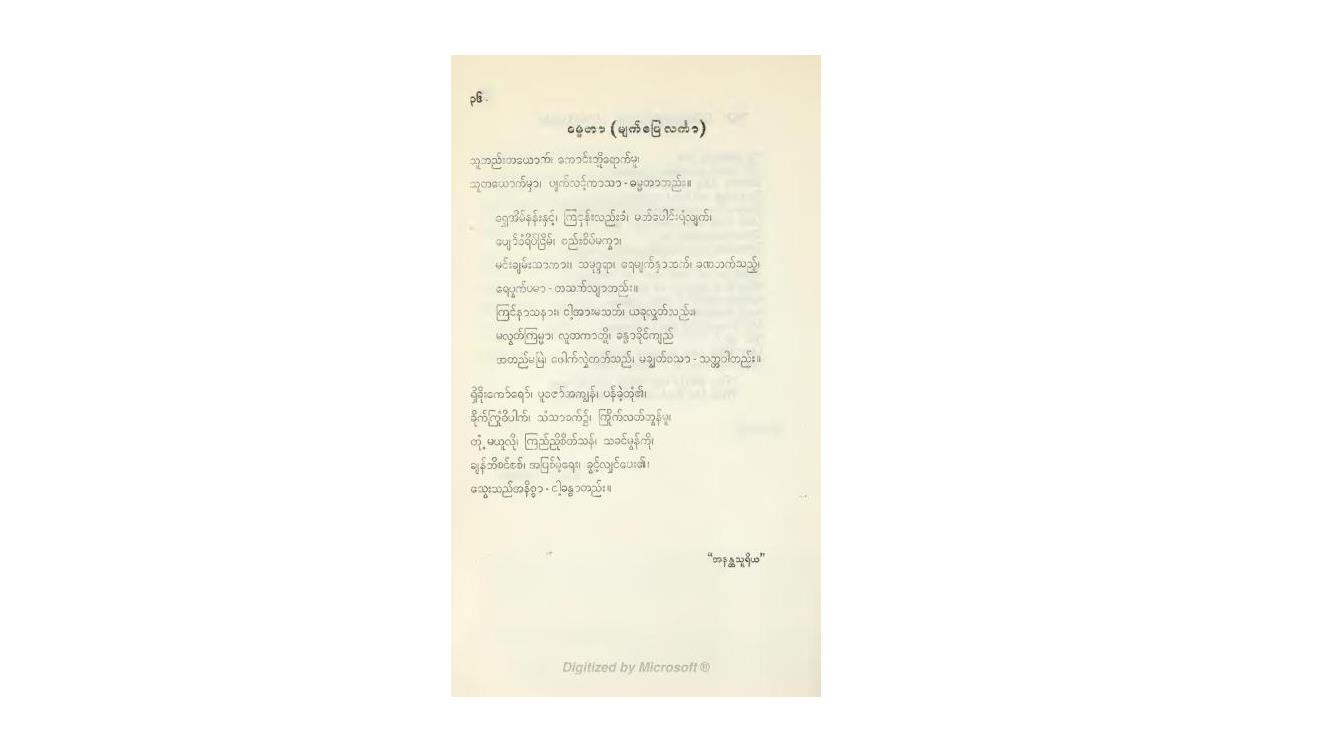 ၃၆
ဓမ္မတာ (မျက်ဖြေလင်္ကာ)
သူတည်းတယောက်၊ ကောင်းဘို့ရောက်မူ၊
သူတယောက်မှာ၊ ပျက်လင့်ကာသာ - ဓမ္မတာတည်း။
ရွှေအိမ်နန်းနှင့်၊ ကြငှန်းလည်းခံ၊ မတ်ပေါင်းရံလျက်၊
ပျော်စံရိပ်ငြိမ်၊ စည်းစိပ်မကွာ၊
မင်းချမ်းသာကား၊ သမုဒ္ဒရာ၊ ရေမျက်နှာထက်၊ ခဏတက်သည့်၊
ရေပွက်ပမာ - တသက်လျာတည်း။
ကြင်နာသနား၊ ငါ့အားမသတ်၊ ယခုလွှတ်လည်း၊
မလွတ်ကြမ္မာ၊ လူတကာတို့၊ ခန္ဓာခိုင်ကျည်
အတည်မမြဲ၊ ဖေါက်လွှဲတတ်သည်၊ မချွတ်စသာ - သတ္တဝါတည်း။
ရှိခိုးကော်ရော်၊ ပူဇော်အကျွန်၊ ပန်ခဲ့တုံ၏၊
ခိုက်ကြုံဝိပါက်၊ သံသာစက်၌၊ ကြိုက်လတ်တွန်မူ၊
တုံ့မယူလို၊ ကြည်ညိုစိတ်သန်၊ သခင်မွန်ကို၊
ချန်ဘိစင်စစ်၊ အပြစ်မဲ့ရေး၊ ခွင့်လျှင်ပေး၏၊
သွေးသည်အနိစ္စာ - ငါ့ခန္ဓာတည်း။
“အနန္တသူရိယ”
Digitized by Microsoft ®